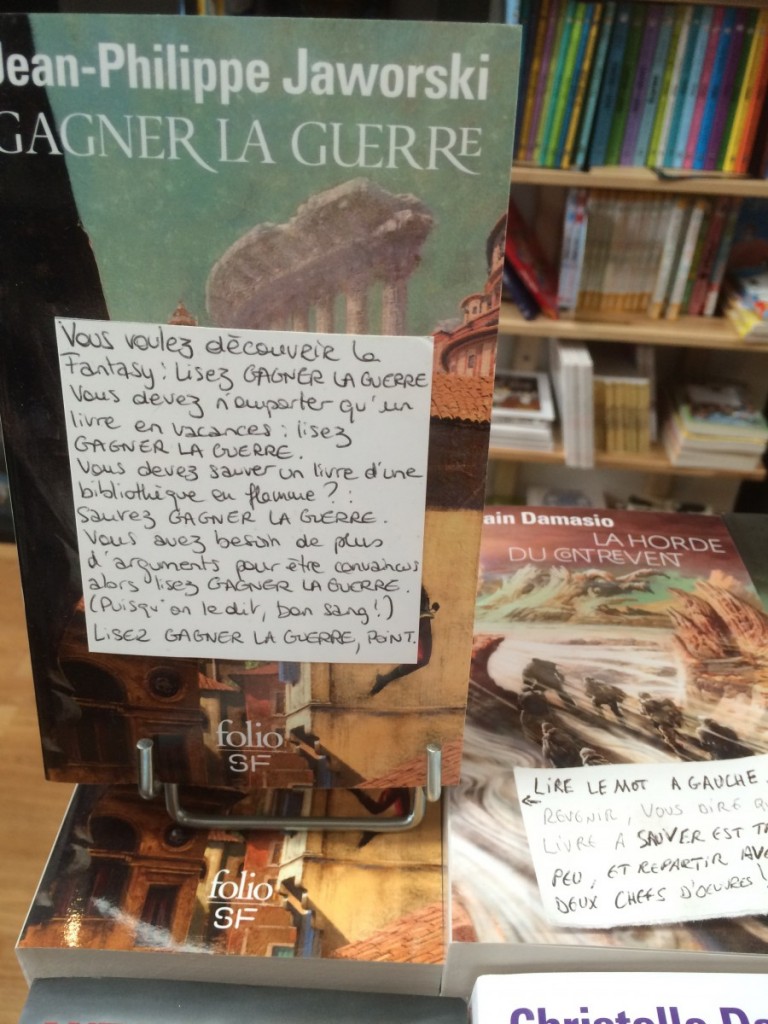 Jean-Philippe Jaworski
GAGNER LA GUERRE
Vous voulez découvrir la
Fantasy : Lisez GAGNER LA GUERRE
Vous devez n'emporter qu'un
livre en vacances : lisez
GAGNER LA GUERRE.
Vous devez sauver un livre d'une
bibliothèque en flamme ? :
Sauvez GAGNER LA GUERRE.
Vous avez besoin de plus
d'arguments pour être convaincus
alors lisez GAGNER LA GUERRE.
(Puisqu'on le dit, bon sang !)
LISEZ GAGNER LA GUERRE, POINT.
folio
SF
folio
SF
ain Damasio
LA HORDE
DU CONTREVENT
LIRE LE MOT A GAUCHE.
REVENIR, VOUS DIRE
LIVRE A SAUVER EST
PEU, ET REPARTIR
DEUX CHEFS D'OEUVRES !
Christelle Da